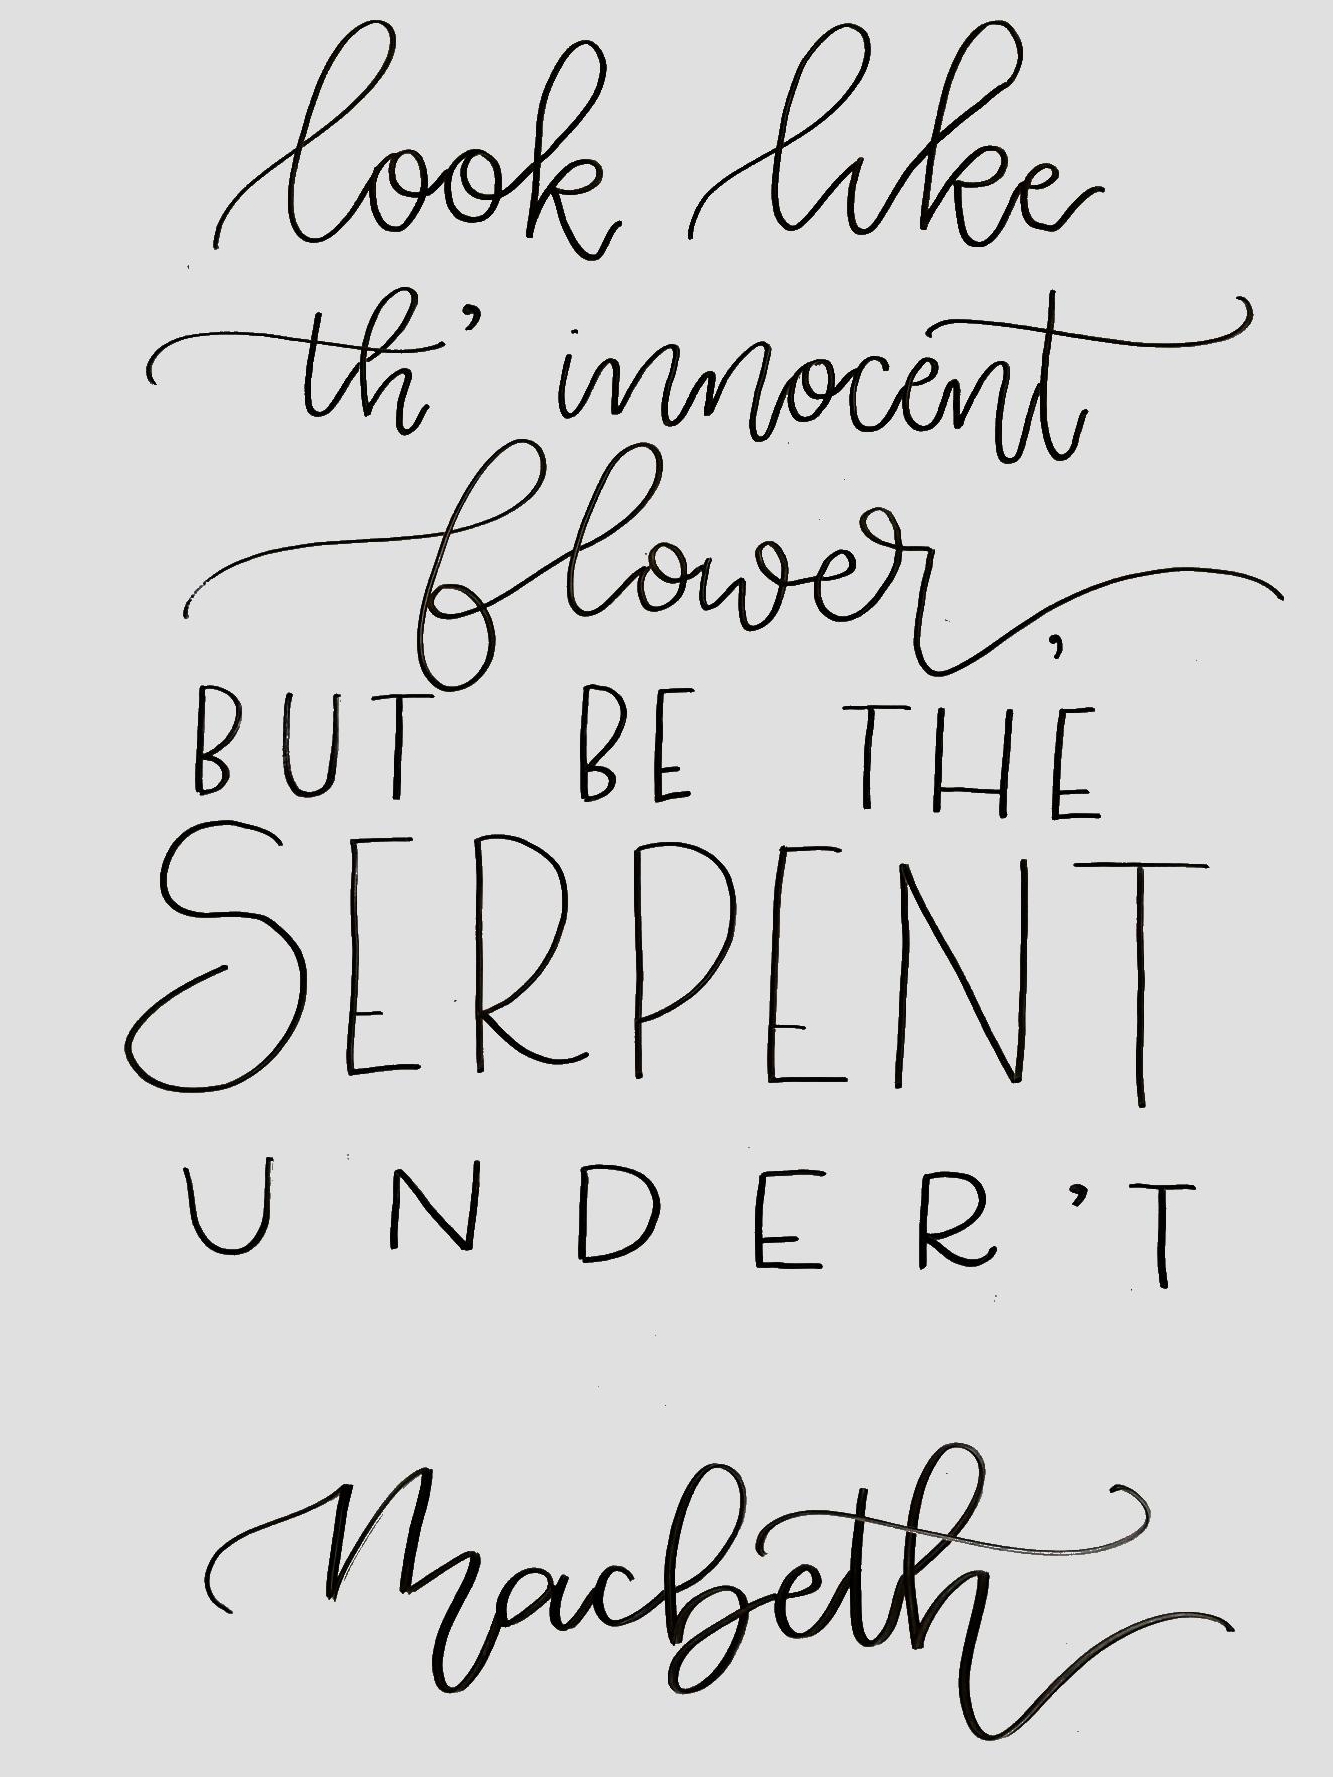 look like
th' innocent
flower,
BUT BE THE
SERPENT
UNDER'T
Macbeth